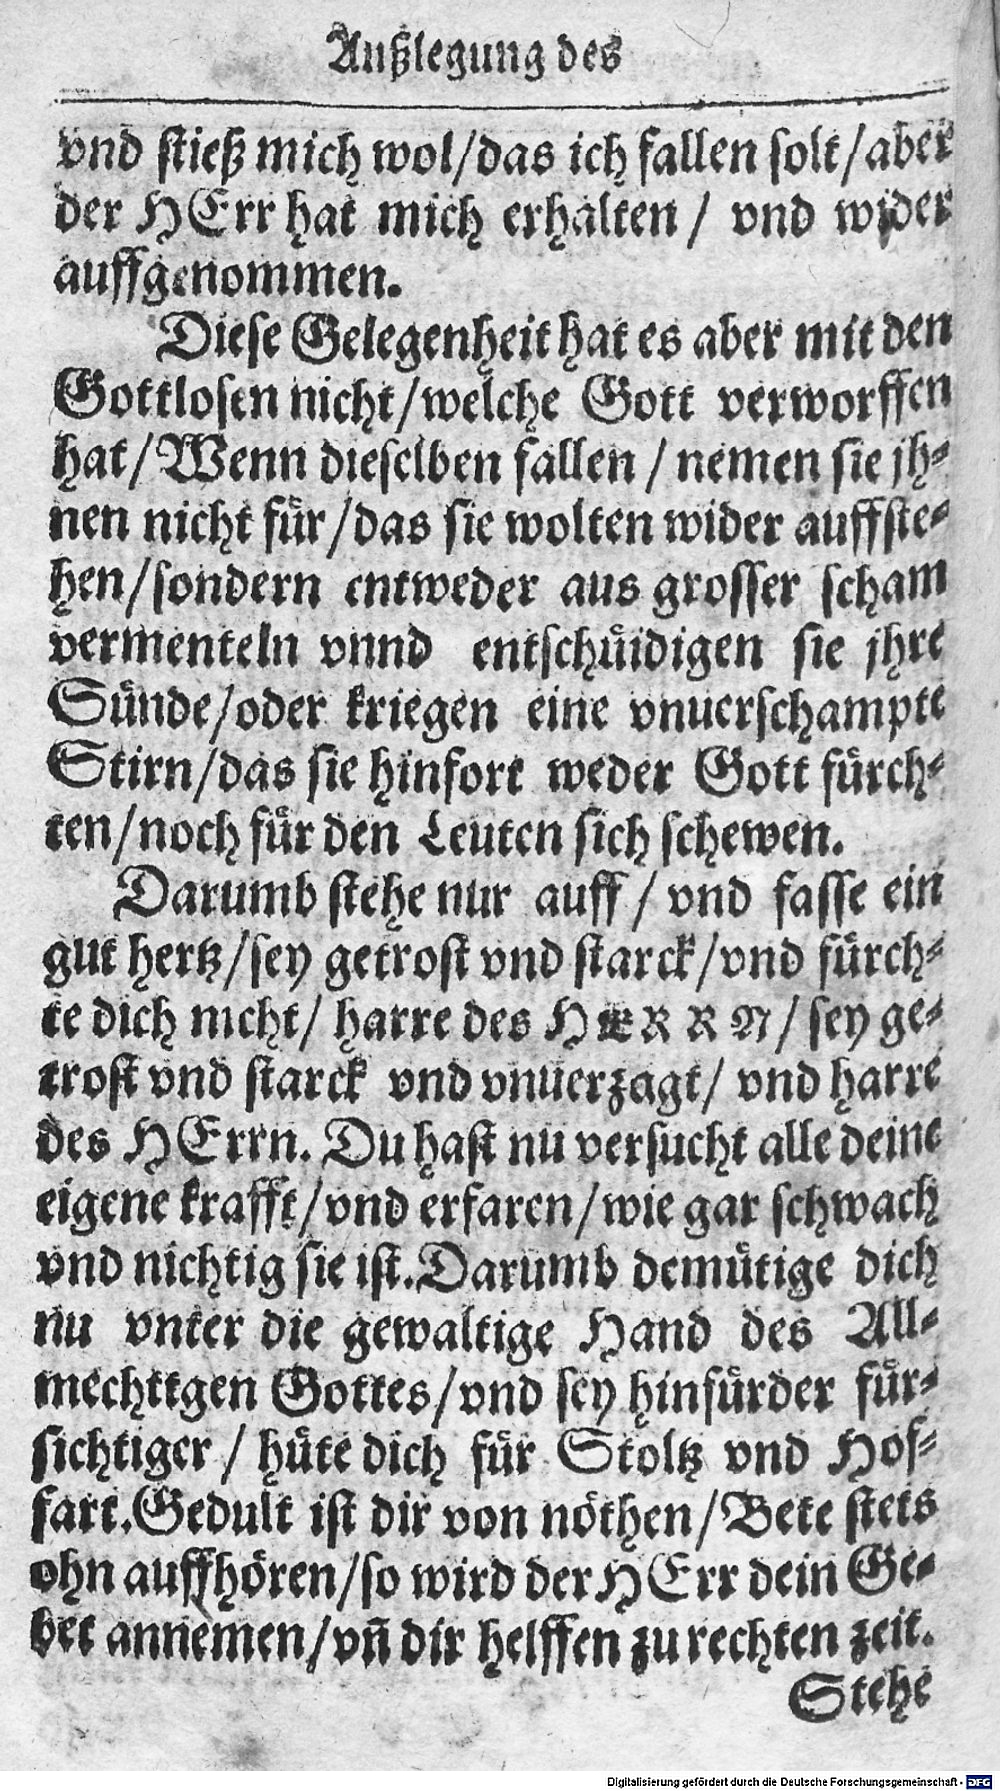 Außlegung des
vnd stieß mich wol/das ich fallen solt/aber
der HErr hat mich erhalten/ vnd wider
auffgenommen.
Diese Gelegenheit hat es aber mit den
Gottlosen nicht/welche Gott verworffen
hat/Wenn dieselben fallen/nemen sie jh-
nen nicht fuͤr/das sie wolten wider auffste-
hen/sondern entweder aus grosser scham
vermenteln vnnd entschuͤldigen sie jhre
Suͤnde/oder kriegen eine vnuerschampte
Stirn/das sie hinfort weder Gott fuͤrch-
ten/noch fuͤr den Leuten sich schewen.
Darumb stehe nur auff/ vnd fasse ein
gut hertz/sey getrost vnd starck/vnd fuͤrch-
te dich nicht/ harre des HERRN/ sey ge-
trost vnd starck vnd vnuerzagt/ vnd harre
des HErrn. Du hast nu versucht alle deine
eigene krafft/vnd erfaren/wie gar schwach
vnd nichtig sie ist. Darumb demuͤtige dich
nu vnter die gewaltige Hand des All-
mechttgen Gottes/vnd sey hinfuͤrder fuͤr-
sichtiger/ huͤte dich fuͤr Stoltz vnd Hof-
fart. Gedult ist dir von noͤthen/Bete stets
ohn auffhoͤren/so wird der HErr dein Ge-
bet annemen/vn̄ dir helffen zu rechten zeit.
Stehe
Digitalisierung gefördert durch die Deutsche Forschungsgemeinschaft - DFG